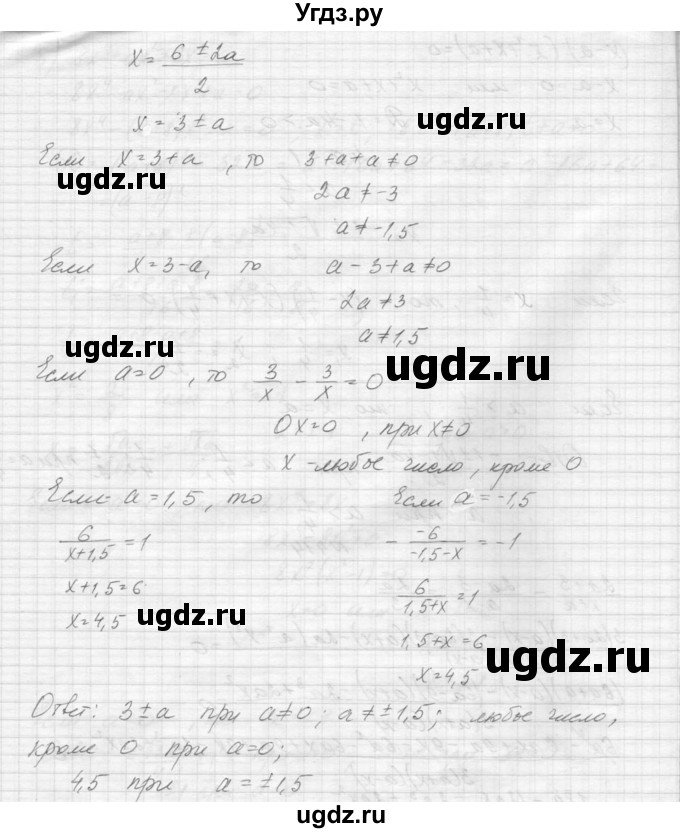 Угдз.ру
x = (6 ± 2a)/2
x = 3 ± a
ugdz.ru
Если x = 3 + a , то 3 + a + a ≠ 0
ugdz.ru
2a ≠ -3
a ≠ -1,5
Если x = 3 - a, то a - 3 + a ≠ 0
2a ≠ 3
a ≠ 1,5
ugdz.ru
ugdz.ru
Если a = 0 , то 3/x - 3/x = 0
0x = 0 , при x ≠ 0
x - любые число, кроме 0
Если a = 1,5, то Если a = -1,5
6/(x + 1,5) = 1 - -6/(-1,5 - x) = -1
x + 1,5 = 6 6/(1,5 + x) = 1
x = 4,5
ugdz.ru
1,5 + x = 6
ugdz.ru
x = 4,5
Ответ: 3 ± a при a ≠ 0; a ≠ ±1,5; любые число,
кроме 0 при a = 0;
4,5 при a = ±1,5
ugdz.ru
ugdz.ru